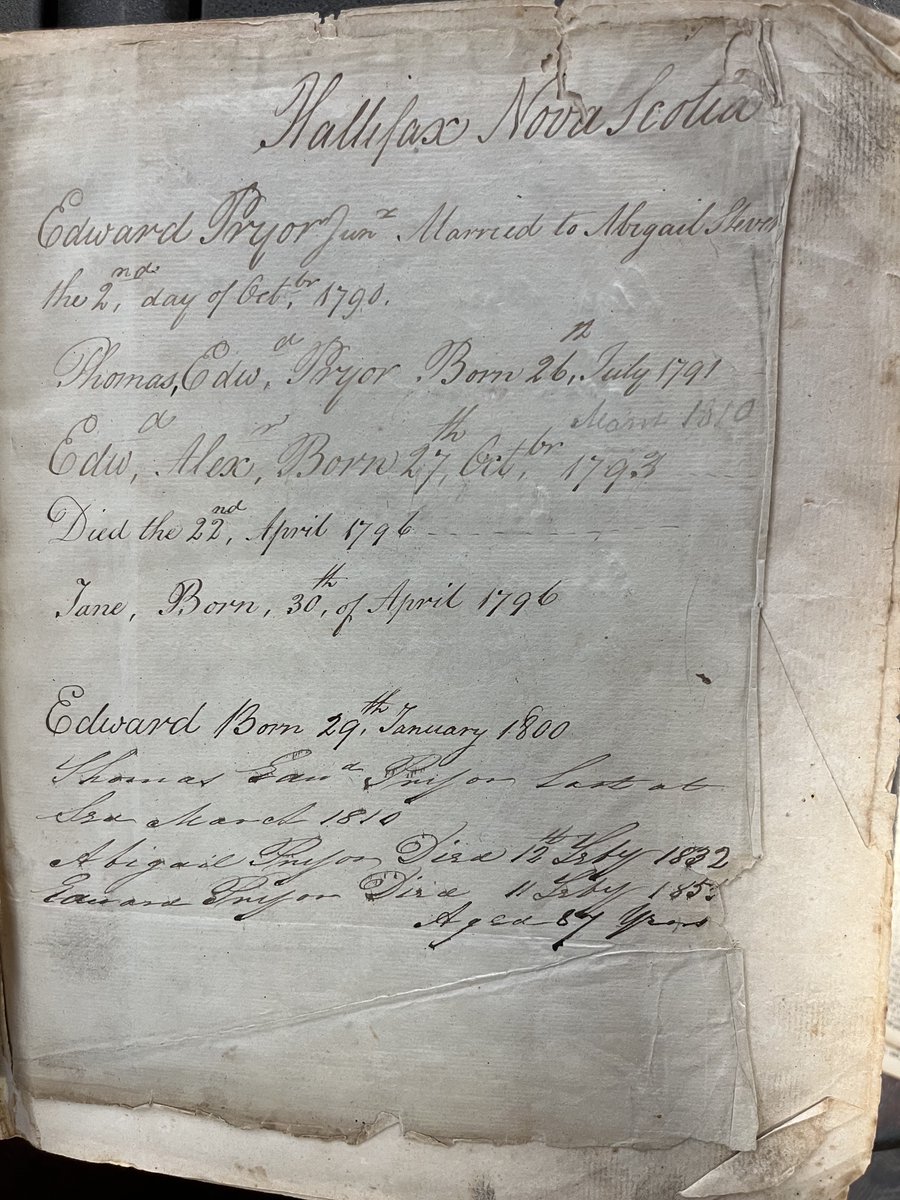 Hallifax Nova Scotia
Edward Pryor Junr Married to Abigail
the 2nd, day of Octbr, 1790.
Thomas, Edwd, Pryor Born 26, July 1791
March 1810
Edwd, Alexr, Born 27th, Octbr, 1793
Died the 22nd, April 1796
Jane, Born, 30th, of April 1796
Edward Born 29th, January 1800
Thomas Edwd Pryor Lost at
Sea March 1810
Abigail Pryor Died 12th Feby 1832
Edward Pryor Died 11 Feby
Aged 87 Years